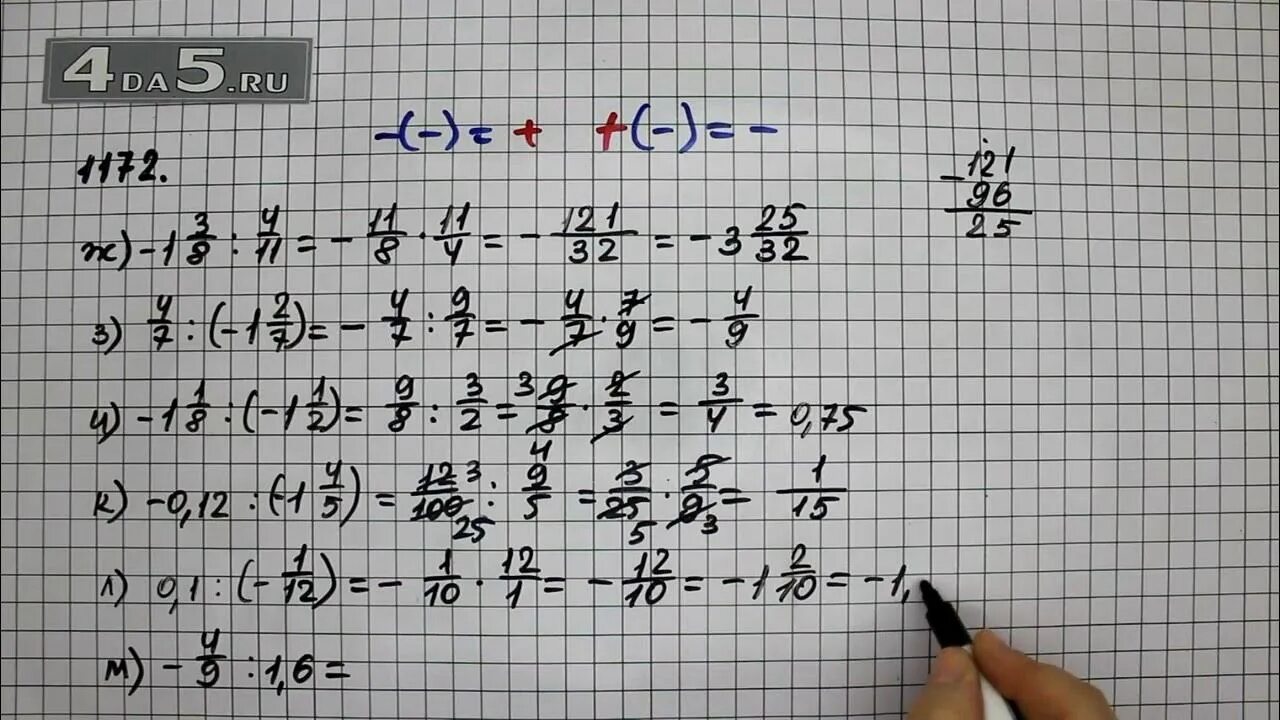 4DA5.RU
-(-) = +  +(-) = -
1172.
121
- 96
25
ж) -1 3/8 : 4/11 = - 11/8 · 11/4 = - 121/32 = -3 25/32
з) 4/7 : (-1 2/7) = - 4/7 : 9/7 = - 4/7 · 7/9 = - 4/9
и) -1 1/8 : (-1 1/2) = 9/8 : 3/2 = 3 9/8 4 · 2/3 = 3/4 = 0,75
к) -0,12 : (-1 4/5) = 12 3/100 25 : 9/5 = 3/25 5 · 5/9 3 = 1/15
л) 0,1 : (- 1/12) = - 1/10 · 12/1 = - 12/10 = -1 2/10 = -1,
м) - 4/9 : 1,6 =